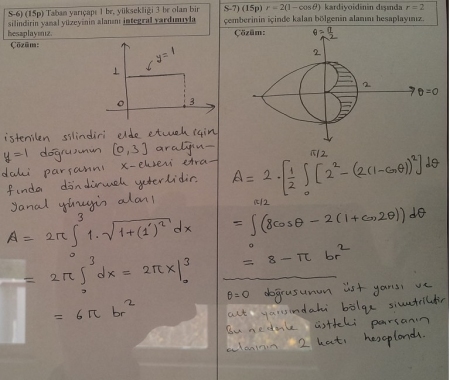 S-6) (15p) Taban yarıçapı 1 br, yüksekliği 3 br olan bir
silindirin yanal yüzeyinin alanını integral yardımıyla
hesaplayınız.
Çözüm:
y=1
1
0
3
istenilen silindiri elde etmek için
y=1 doğrusunun [0,3] aralığın-
daki parçasını x-ekseni etra-
fında döndürmek yeterlidir.
Yanal yüzeyin alanı
A = 2π ∫₀³ 1·√(1+(1')²) dx
= 2π ∫₀³ dx = 2πx|₀³
= 6π br²
S-7) (15p) r = 2(1-cosθ) kardiyoidinin dışında r = 2
çemberinin içinde kalan bölgenin alanını hesaplayınız.
Çözüm:
θ=π/2
2
2
θ=0
A = 2·[1/2 ∫₀^(π/2) [2² - (2(1-cosθ))²] dθ
= ∫₀^(π/2) (8cosθ - 2(1+cos2θ)) dθ
= 8 - π br²
θ=0 doğrusunun üst yarısı ve
alt yarısındaki bölge simetriktir
Bu nedenle üstteki parçanın
alanının 2 katı hesaplandı.